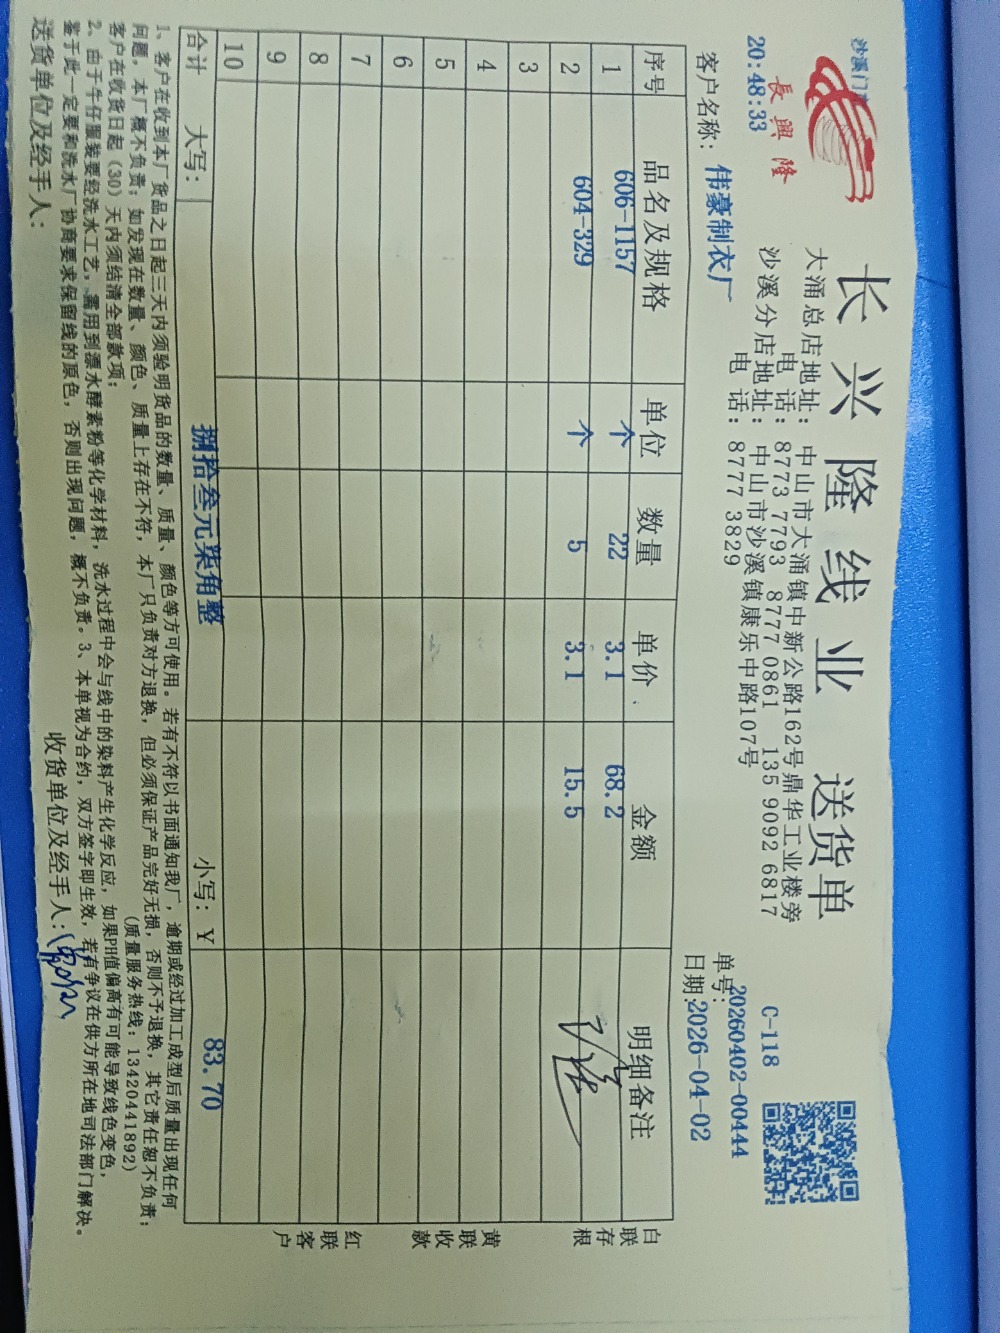 沙溪门
20:48:33
長興隆
长兴隆线业 送货单
大涌总店地址: 中山市大涌镇中新公路162号鼎华工业楼旁
电 话: 8773 7793 8777 0861 135 9092 6817
沙溪分店地址: 中山市沙溪镇康乐中路107号
电 话: 8777 3829
C-118
单号:20260402-00444
客户名称: 伟豪制衣厂
日期:2026-04-02
序号 品名及规格 单位 数量 单价 金额 明细备注
1 606-1157 个 22 3.1 68.2
2 604-329 个 5 3.1 15.5
3
4
5
6
7
8
9
10
合计 大写: 捌拾叁元柒角整 小写: ¥ 83.70
白联存根
黄联收款
红联客户
1、客户在收到本厂货品之日起三天内须验明货品的数量、质量、颜色等方可使用。若有不符以书面通知我厂,逾期或经过加工成型后质量出现任何
问题,本厂概不负责;如发现在数量、颜色、质量上存在不符,本厂只负责对方退换,但必须保证产品完好无损,否则不予退换,其它责任恕不负责;
客户在收货日起(30)天内须结清全部款项; (质量服务热线:13420441892)
2、由于牛仔服装要经洗水工艺,需用到漂水酵素粉等化学材料,洗水过程中会与线中的染料产生化学反应,如果PH值偏高有可能导致线色变色,
鉴于此一定要和洗水厂协商要求保留线的原色,否则出现问题,概不负责。3、本单视为合约,双方签字即生效,若有争议在供方所在地司法部门解决。
送货单位及经手人: 收货单位及经手人: